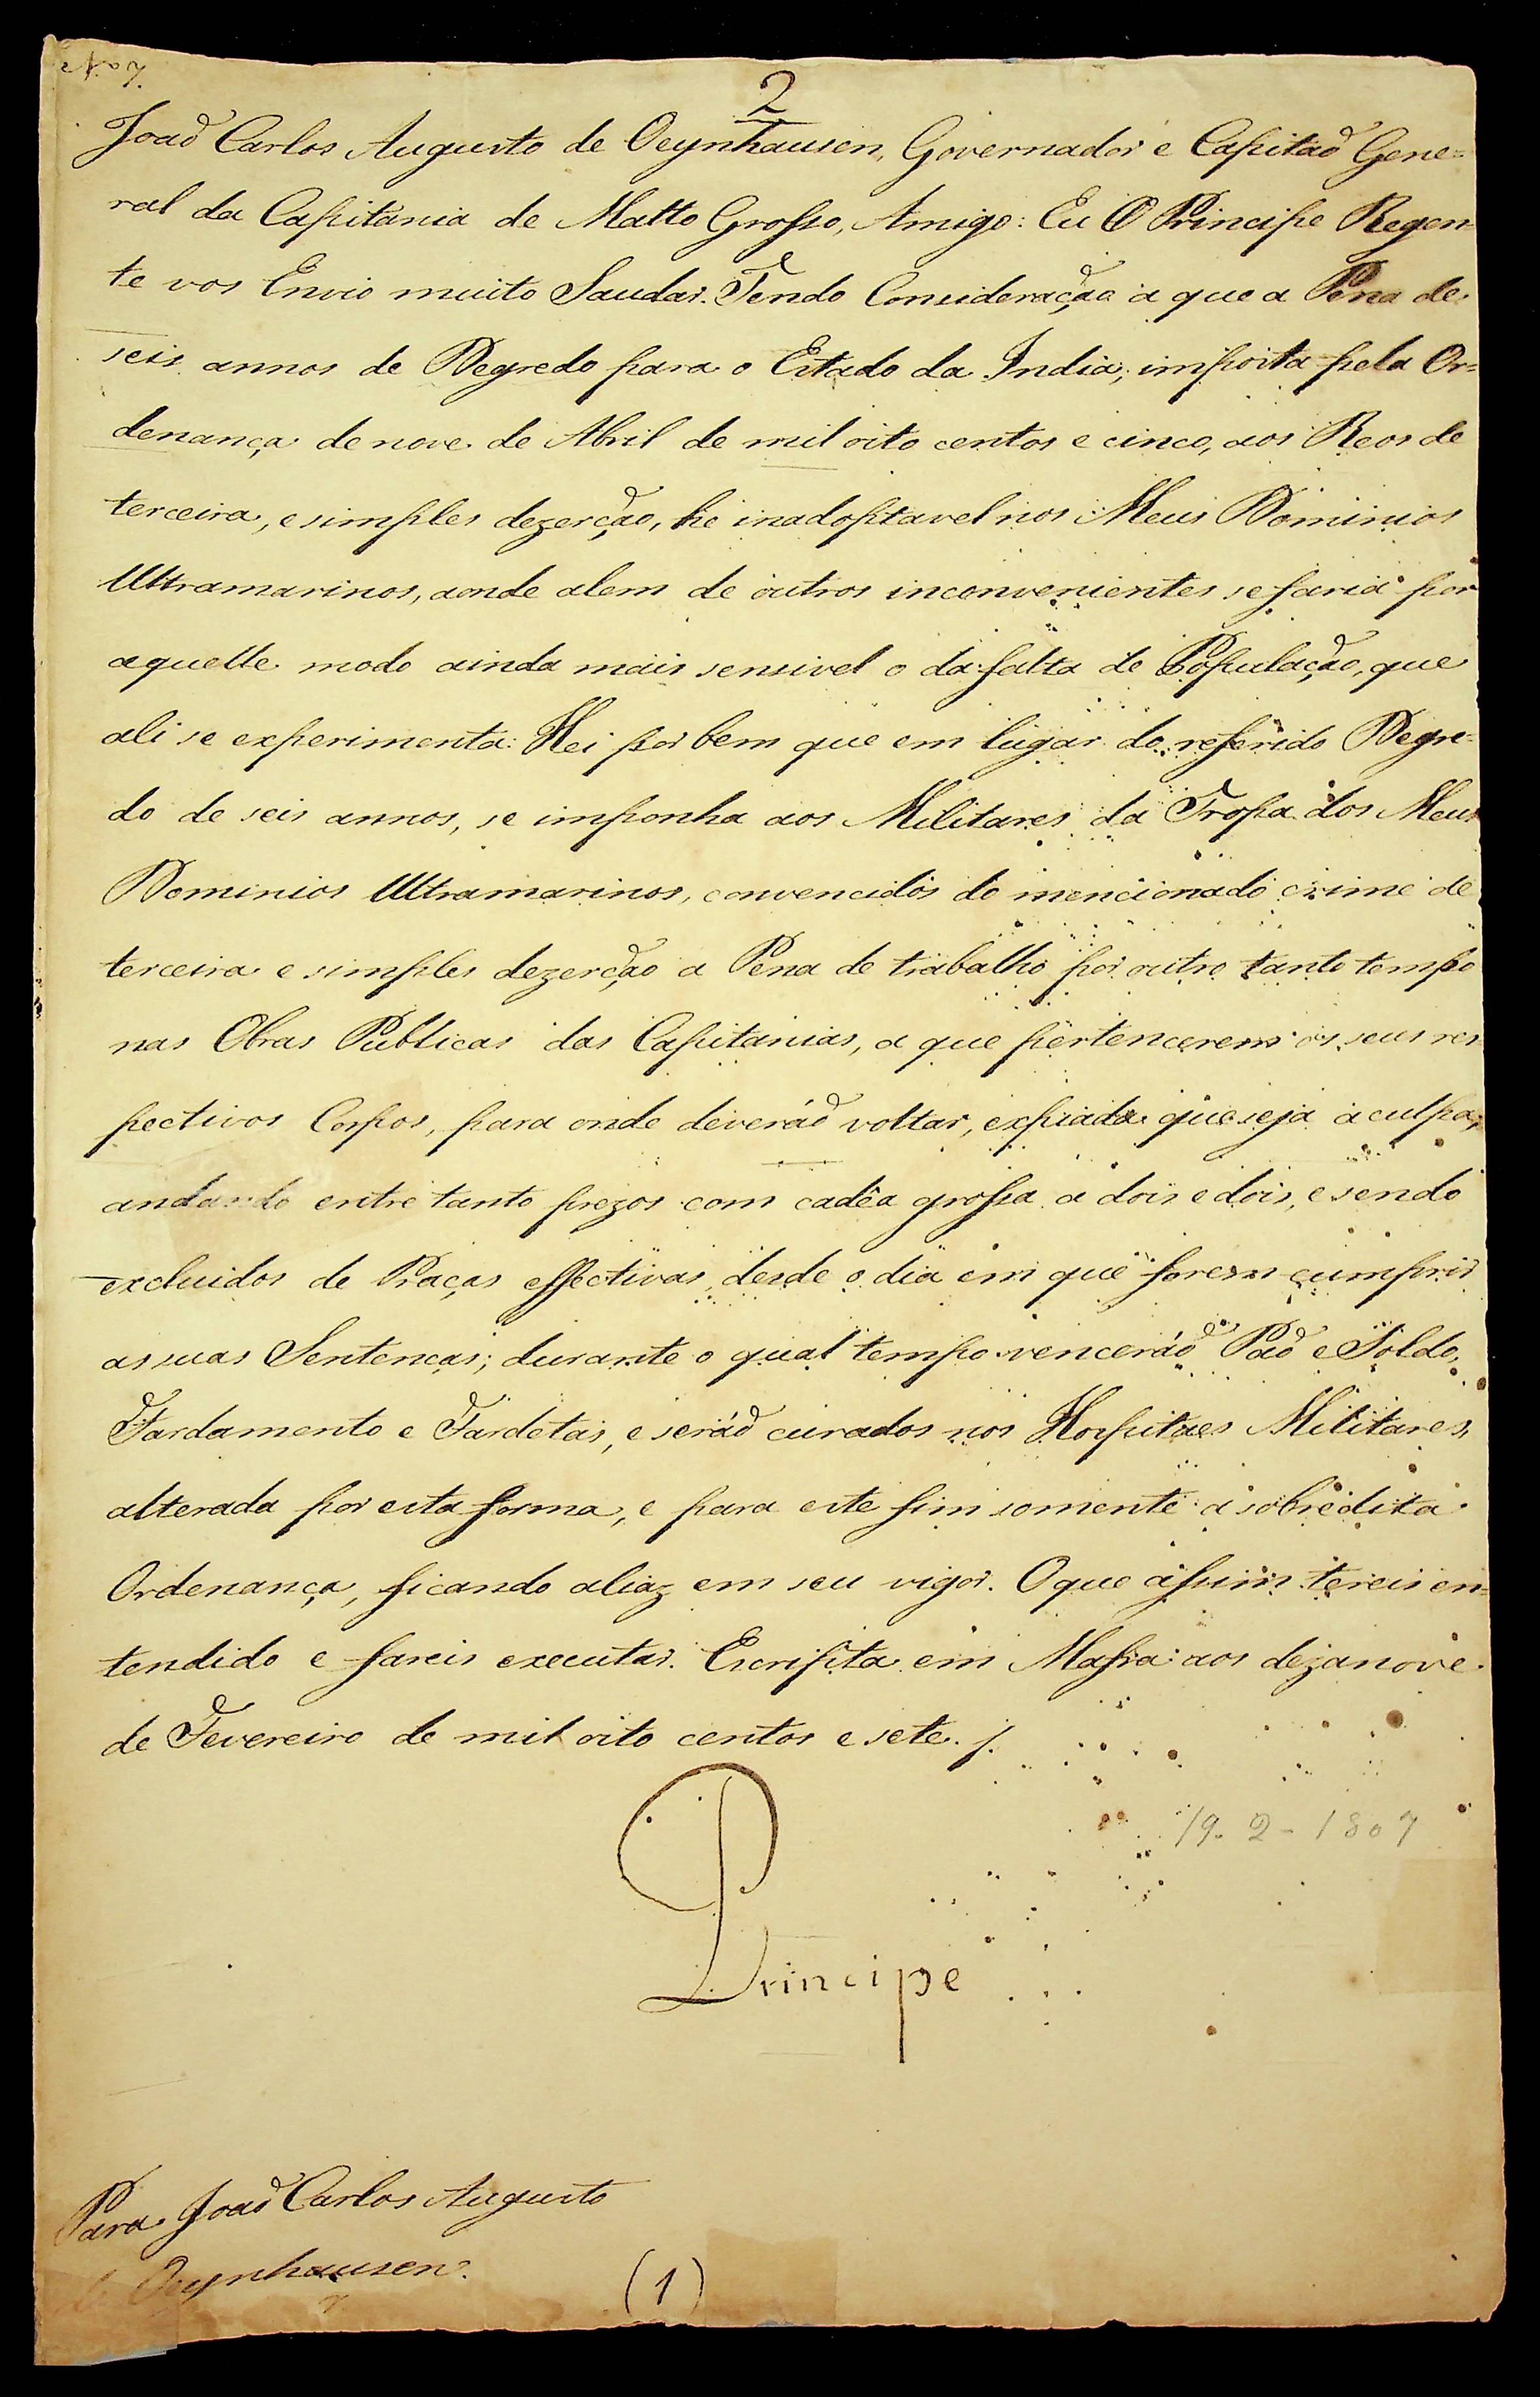 Nº 7.
2
Joaõ Carlos Augusto de Oeynhausen, Governador e Capitaõ Gene=
ral da Capitánia de Matto Grosso, Amigo: Eu O Principe Regen=
te vos Envio muito Saudar. Tendo Consideraçaõ a que a Pena de
seis annos de Degredo para o Estado da India, imposta pela Or=
denança de nove de Abril de mil oito centos e cinco, aos Reos de
terceira, e simples dezerçaõ, he inadoptavel nos Meus Dominios
Ultramarinos, aonde alem de outros inconvenientes se faria por
aquelle modo ainda mais sensivel o da falta de Populaçaõ, que
ali se experimenta: Hei por bem que em lugar do referido Degre=
do de seis annos, se imponha aos Militares da Tropa dos Meus
Dominios Ultramarinos, convencidos do mencionado crime de
terceira e simples dezerçaõ a Pena de trabalho por outro tanto tempo
nas Obras Publicas das Capitanias, a que pertencerem os seus res
pectivos Corpos, para onde deveráõ voltar, expiada que seja a culpa,
andando entre tanto prezos com cadêa grossa a dois e dois, e sendo
excluidos de Praças effectivas, desde o dia em que forem cumprir
as suas Sentenças; durante o qual tempo venceráõ Paõ e Soldo,
Fardamento e Fardetas, e seráõ curados nos Hospitaes Militares,
alterada por esta forma, e para este fim somente a sobredita
Ordenança, ficando aliaz em seu vigor. O que assim tereis en=
tendido e fareis executar. Escripta em Mafra aos dezanove
de Fevereiro de mil oito centos e sete.
19-2-1807
Principe
Para Joaõ Carlos Augusto
de Oeynhausen.
(1)